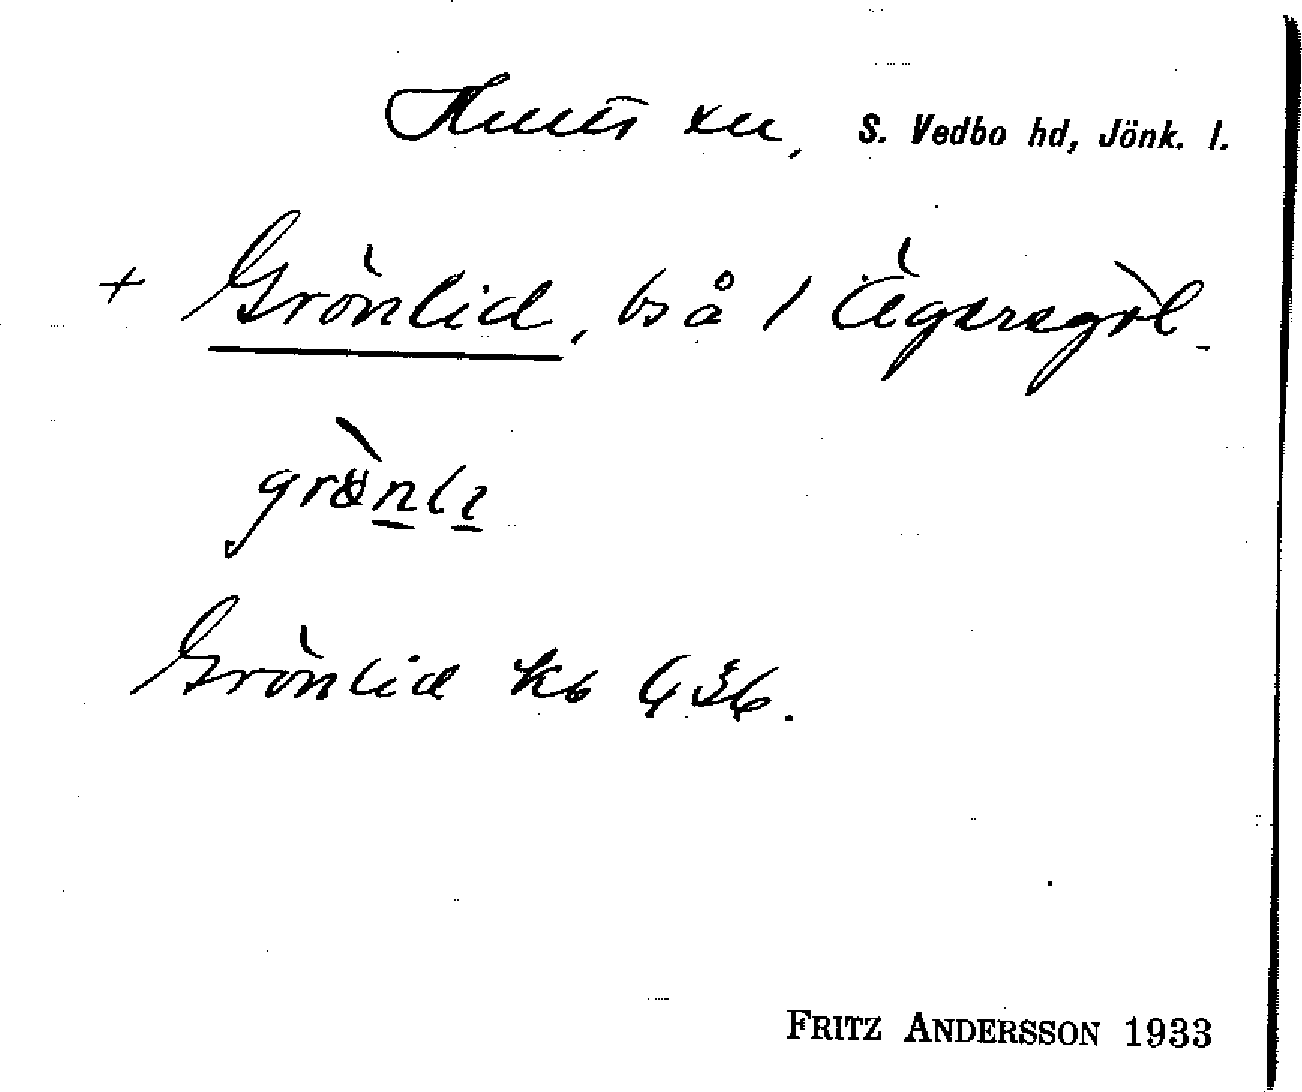 Hults sn, S. Vedbo hd, Jönk. l.
+ Grönlid, bs å 1 Ägersgöl.
grönlı
Grönlid kb 636.
FRITZ ANDERSSON 1933